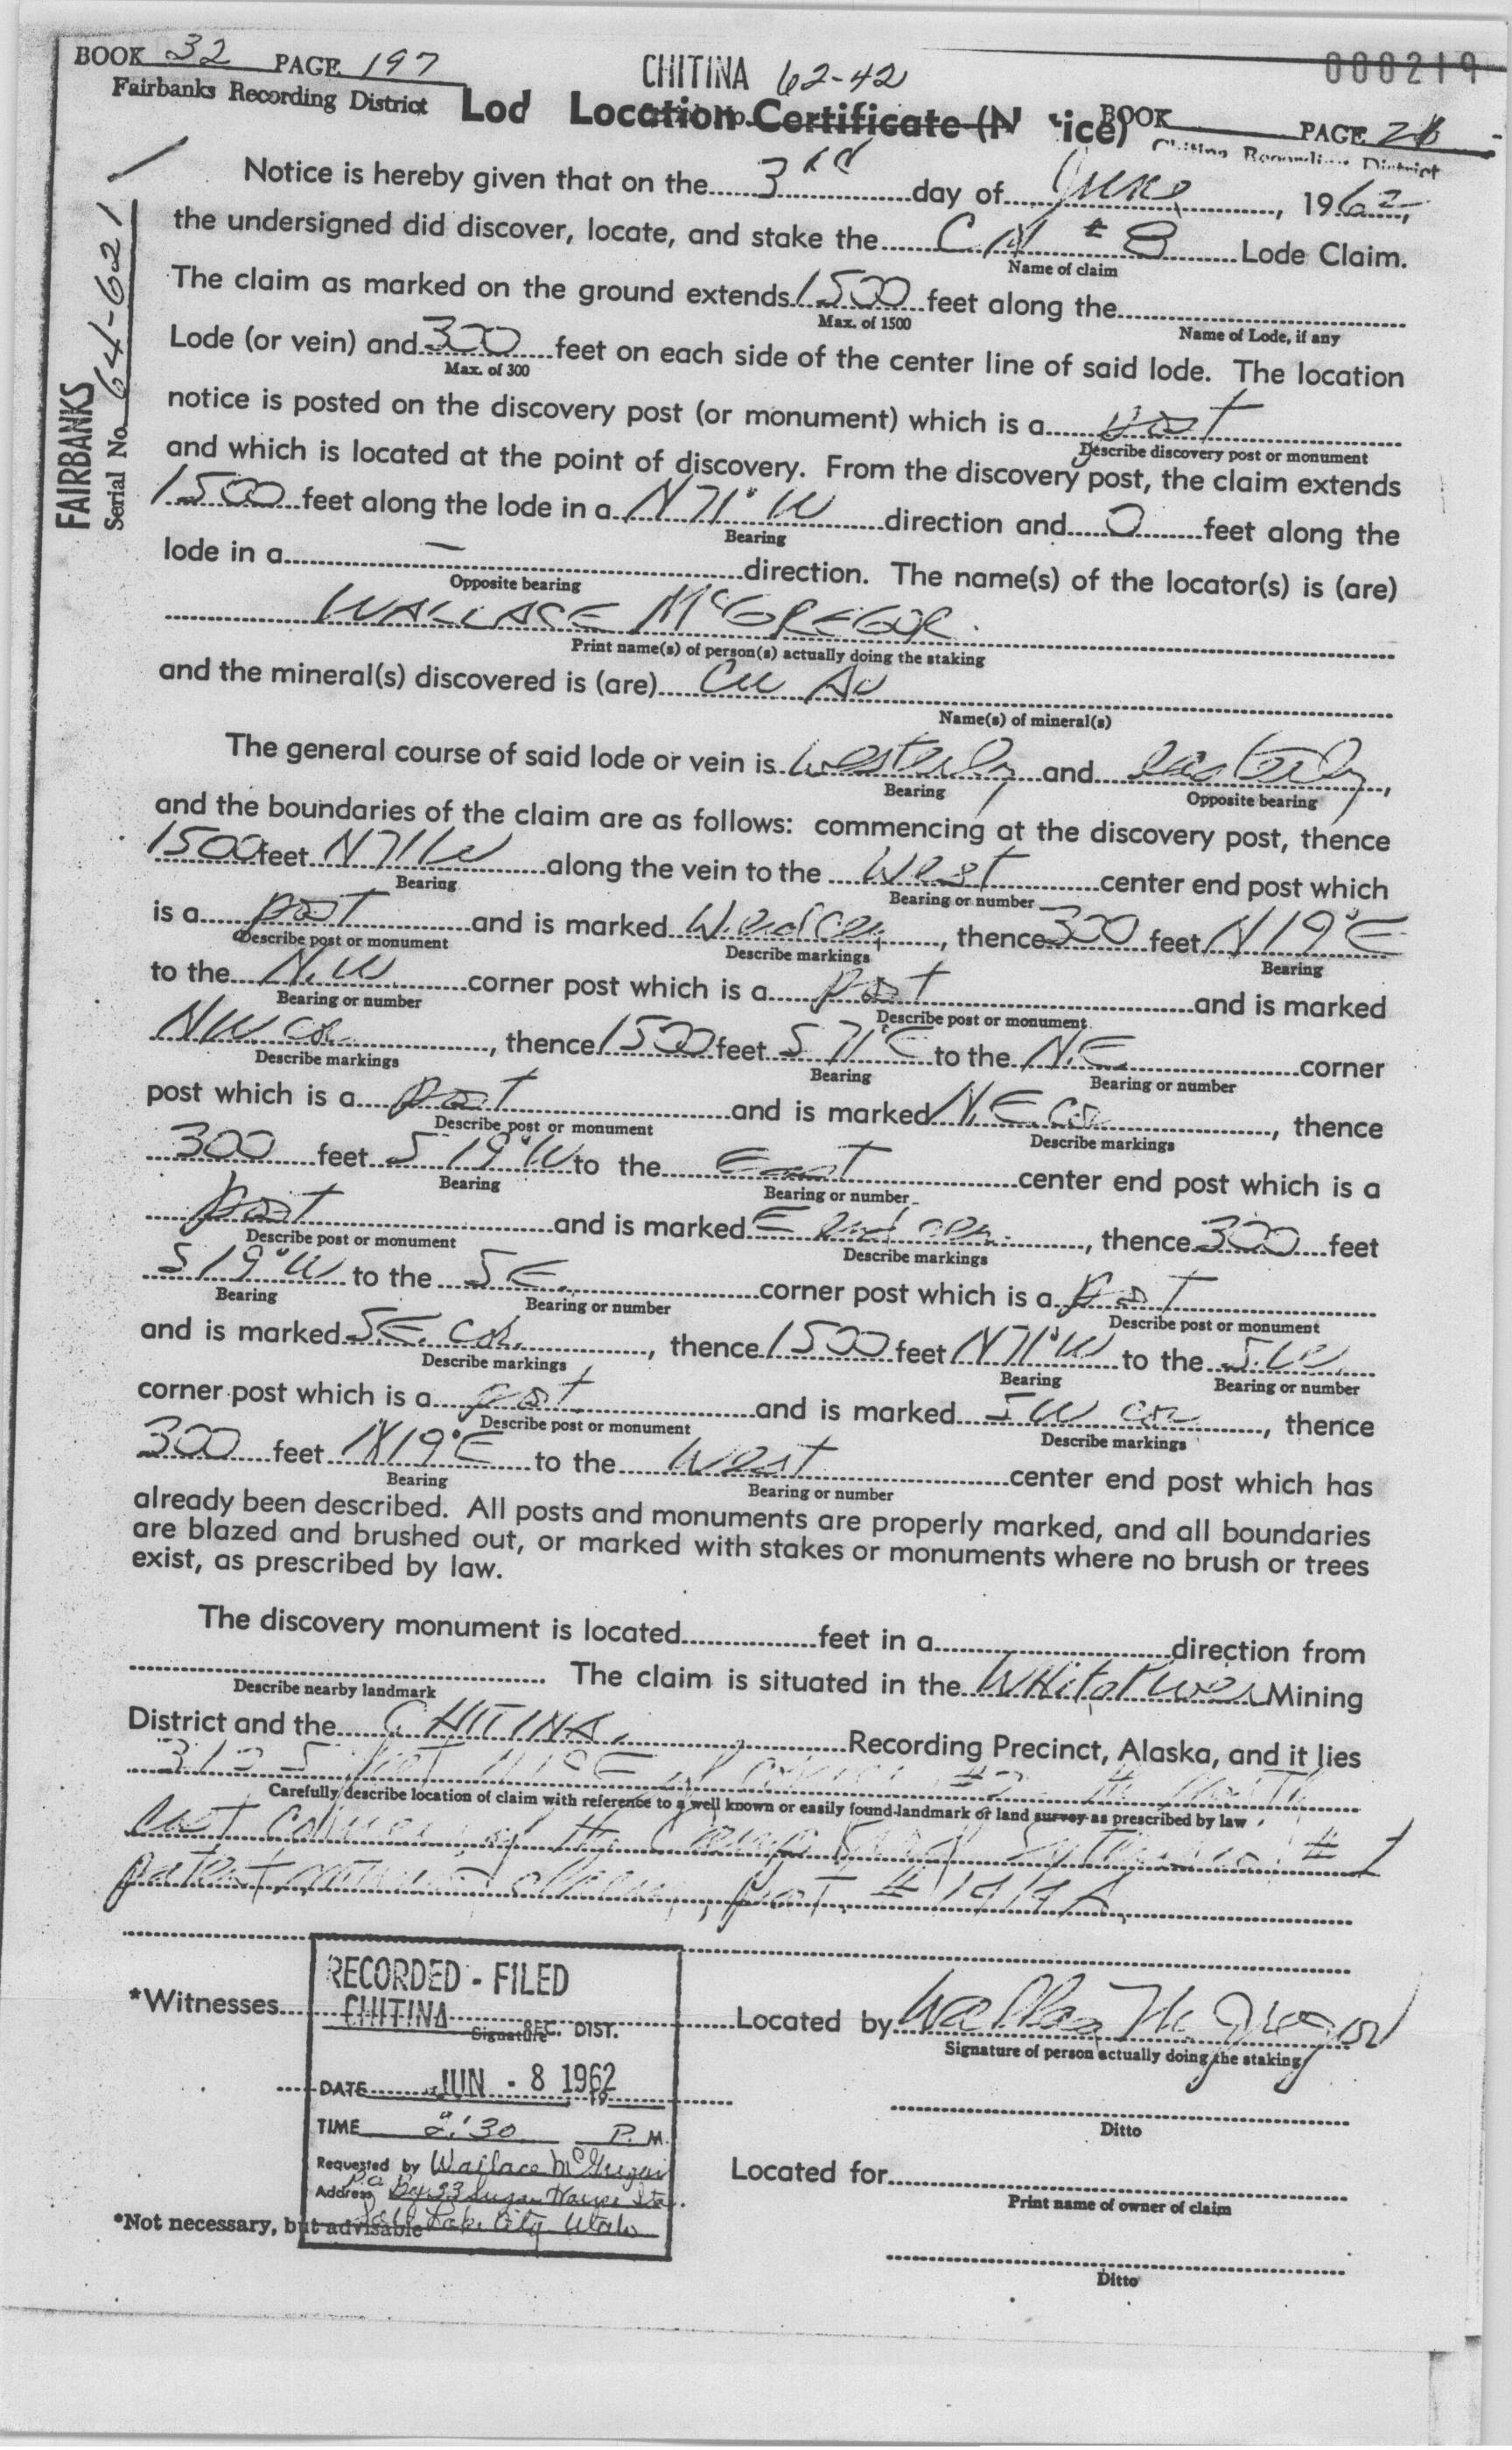 BOOK 32 PAGE 197
Fairbanks Recording District
CHITINA 62-42
000219
Lod Location Certificate (N tice)
BOOK PAGE
Chitina Recording District
FAIRBANKS
Serial No. 64-621
Notice is hereby given that on the 3rd day of June, 1962,
the undersigned did discover, locate, and stake the # 8 Lode Claim.
Name of claim
The claim as marked on the ground extends 1500 feet along the
Max. of 1500 Name of Lode, if any
Lode (or vein) and 300 feet on each side of the center line of said lode. The location
Max. of 300
notice is posted on the discovery post (or monument) which is a post
Describe discovery post or monument
and which is located at the point of discovery. From the discovery post, the claim extends
1500 feet along the lode in a N 71° W direction and 0 feet along the
Bearing
lode in a — direction. The name(s) of the locator(s) is (are)
Opposite bearing
WALLACE McGREGOR.
Print name(s) of person(s) actually doing the staking
and the mineral(s) discovered is (are) Cu Au
Name(s) of mineral(s)
The general course of said lode or vein is westerly and easterly,
Bearing Opposite bearing
and the boundaries of the claim are as follows: commencing at the discovery post, thence
1500 feet N 71 W along the vein to the West center end post which
Bearing Bearing or number
is a post and is marked W. end cen, thence 300 feet N 19° E
Describe post or monument Describe markings Bearing
to the N.W corner post which is a post and is marked
Bearing or number Describe post or monument
NW Cor, thence 1500 feet S 71° E to the N.E. corner
Describe markings Bearing Bearing or number
post which is a post and is marked N.E. Cor, thence
Describe post or monument Describe markings
300 feet S 19° W to the East center end post which is a
Bearing Bearing or number
post and is marked E end cen., thence 300 feet
Describe post or monument Describe markings
S 19° W to the S E. corner post which is a post
Bearing Bearing or number Describe post or monument
and is marked S.E. Cor., thence 1500 feet N 71° W to the S.W.
Describe markings Bearing Bearing or number
corner post which is a post and is marked S W cor, thence
Describe post or monument Describe markings
300 feet N 19° E to the West center end post which has
Bearing Bearing or number
already been described. All posts and monuments are properly marked, and all boundaries
are blazed and brushed out, or marked with stakes or monuments where no brush or trees
exist, as prescribed by law.
The discovery monument is located feet in a direction from
The claim is situated in the White River Mining
Describe nearby landmark
District and the CHITINA Recording Precinct, Alaska, and it lies
3125 feet of corner #2 the North
Carefully describe location of claim with reference to a well known or easily found landmark or land survey as prescribed by law
east corner of the # 1
patent
*Witnesses
Signature
RECORDED - FILED
CHITINA REC. DIST.
DATE JUN - 8 1962
TIME 2:30 P. M.
Requested by Wallace McGregor
Address P.O. Bx 33 Sugar House Sta.
Salt Lake City Utah
*Not necessary, but advisable
Located by Wallace McGregor
Signature of person actually doing the staking
Ditto
Located for
Print name of owner of claim
Ditto